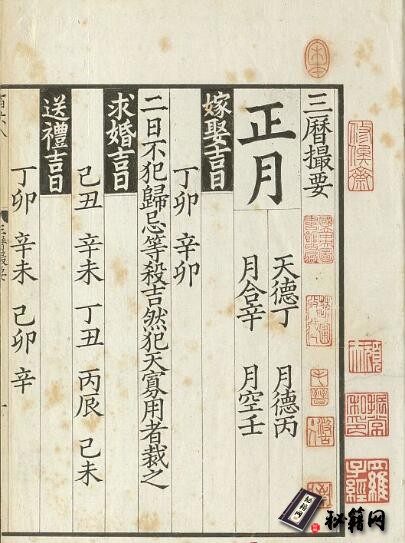 三曆撮要
正月
天德丁 月德丙
月合辛 月空壬
嫁娶吉日
丁卯 辛卯
二日不犯歸忌等殺吉然犯天寡用者裁之
求婚吉日
己丑 辛未 丁丑 丙辰 己未
送禮吉日
丁卯 辛未 己卯 辛
秘籍网